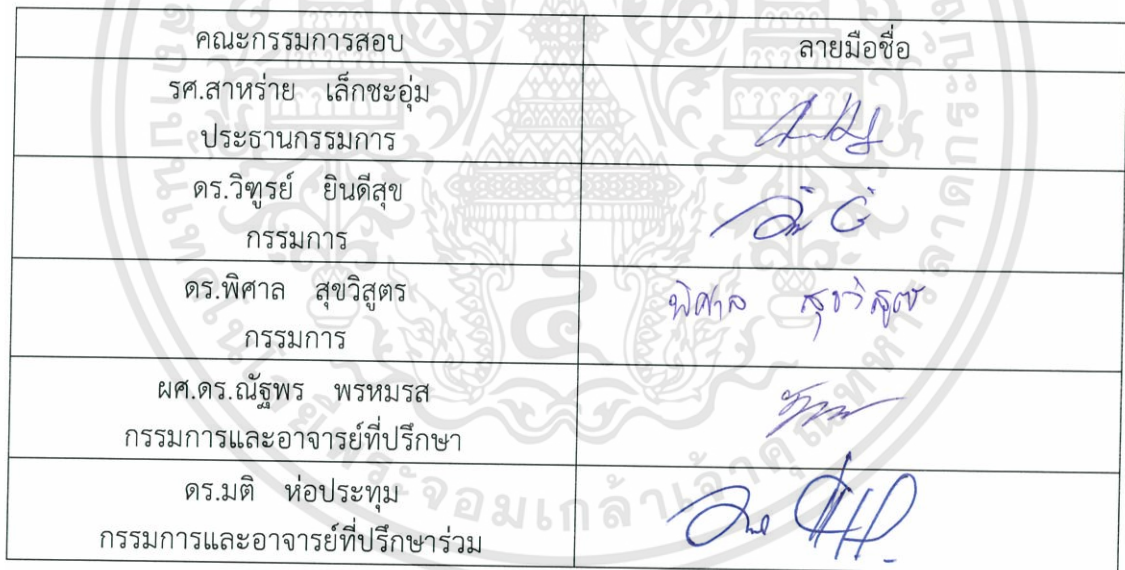 คณะกรรมการสอบ ลายมือชื่อ
รศ.สาหร่าย เล็กชะอุ่ม
ประธานกรรมการ
ดร.วิฑูรย์ ยินดีสุข
กรรมการ
ดร.พิศาล สุขวิสูตร พิศาล สุขวิสูตร
กรรมการ
ผศ.ดร.ณัฐพร พรหมรส
กรรมการและอาจารย์ที่ปรึกษา
ดร.มติ ห่อประทุม
กรรมการและอาจารย์ที่ปรึกษาร่วม